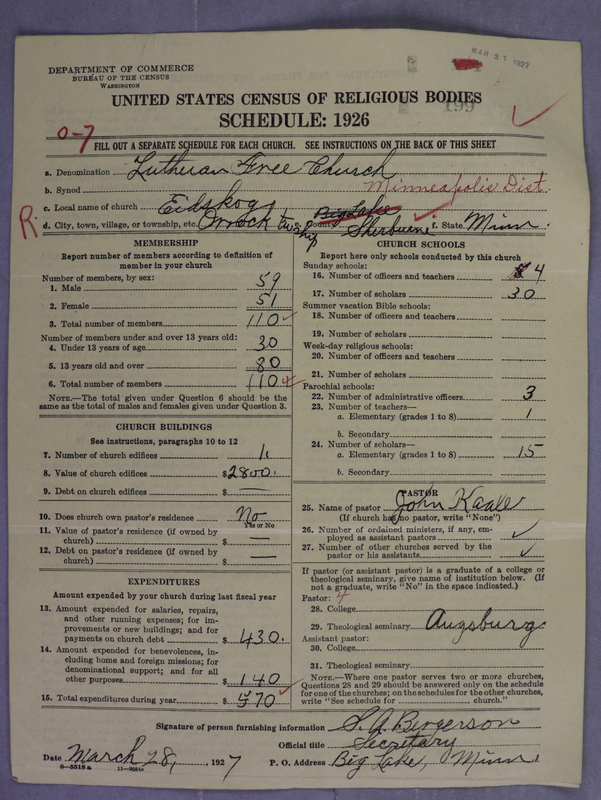 MAR 31 1927
DEPARTMENT OF COMMERCE
BUREAU OF THE CENSUS
WASHINGTON
199
UNITED STATES CENSUS OF RELIGIOUS BODIES
SCHEDULE: 1926
0-7
FILL OUT A SEPARATE SCHEDULE FOR EACH CHURCH. SEE INSTRUCTIONS ON THE BACK OF THIS SHEET
a. Denomination Lutheran Free Church
b. Synod Minneapolis Dist.
c. Local name of church Eidskog Big Lake
R. d. City, town, village, or township, etc. Orrock twshp e. County Sherburne f. State Minn.
MEMBERSHIP
Report number of members according to definition of
member in your church
Number of members, by sex:
1. Male 59
2. Female 51
3. Total number of members 110
Number of members under and over 13 years old:
4. Under 13 years of age 30
5. 13 years old and over 80
6. Total number of members 110
NOTE.—The total given under Question 6 should be the
same as the total of males and females given under Question 3.
CHURCH BUILDINGS
See instructions, paragraphs 10 to 12
7. Number of church edifices 1
8. Value of church edifices $2800.
9. Debt on church edifices $ —
10. Does church own pastor's residence No
Yes or No
11. Value of pastor's residence (if owned by
church) $ —
12. Debt on pastor's residence (if owned by
church) $ —
EXPENDITURES
Amount expended by your church during last fiscal year
13. Amount expended for salaries, repairs,
and other running expenses; for im-
provements or new buildings; and for
payments on church debt $ 430.
14. Amount expended for benevolences, in-
cluding home and foreign missions; for
denominational support; and for all
other purposes $ 140
15. Total expenditures during year $ 570
CHURCH SCHOOLS
Report here only schools conducted by this church
Sunday schools:
16. Number of officers and teachers 4
17. Number of scholars 30
Summer vacation Bible schools:
18. Number of officers and teachers
19. Number of scholars
Week-day religious schools:
20. Number of officers and teachers
21. Number of scholars
Parochial schools:
22. Number of administrative officers 3
23. Number of teachers—
a. Elementary (grades 1 to 8) 1
b. Secondary
24. Number of scholars—
a. Elementary (grades 1 to 8) 15
b. Secondary
PASTOR
25. Name of pastor John Kaale
(If church has no pastor, write "None")
26. Number of ordained ministers, if any, em-
ployed as assistant pastors
27. Number of other churches served by the
pastor or his assistants
If pastor (or assistant pastor) is a graduate of a college or
theological seminary, give name of institution below. (If
not a graduate, write "No" in the space indicated.)
Pastor: 4
28. College
29. Theological seminary Augsburg
Assistant pastor:
30. College
31. Theological seminary
NOTE.—Where one pastor serves two or more churches,
Questions 28 and 29 should be answered only on the schedule
for one of the churches; on the schedules for the other churches,
write "See schedule for church."
Signature of person furnishing information S. A. Bergerson
Official title Secretary
Date March 28, 1927 P. O. Address Big Lake, Minn